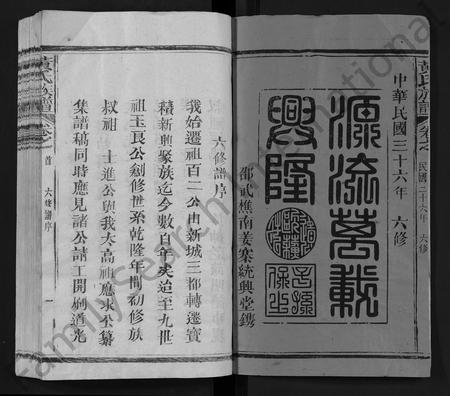 黃氏族譜
卷之
民國三十六年 六修
中華民國三十六年 六修
源流萬載
興隆
子孫保之
邵武樵南姜寨統興堂鐫
六修譜序
我始遷祖百二公由新城三都轉遷寶
積新興聚族迄今數百年矣追至九世
祖玉良公創修世系乾隆年間初修族
叔祖 士進公與我太高祖應求公纂
集譜稿同時應見諸公請工開刷道光
黃氏族譜
卷之
首
六修譜序
FamilySearch International